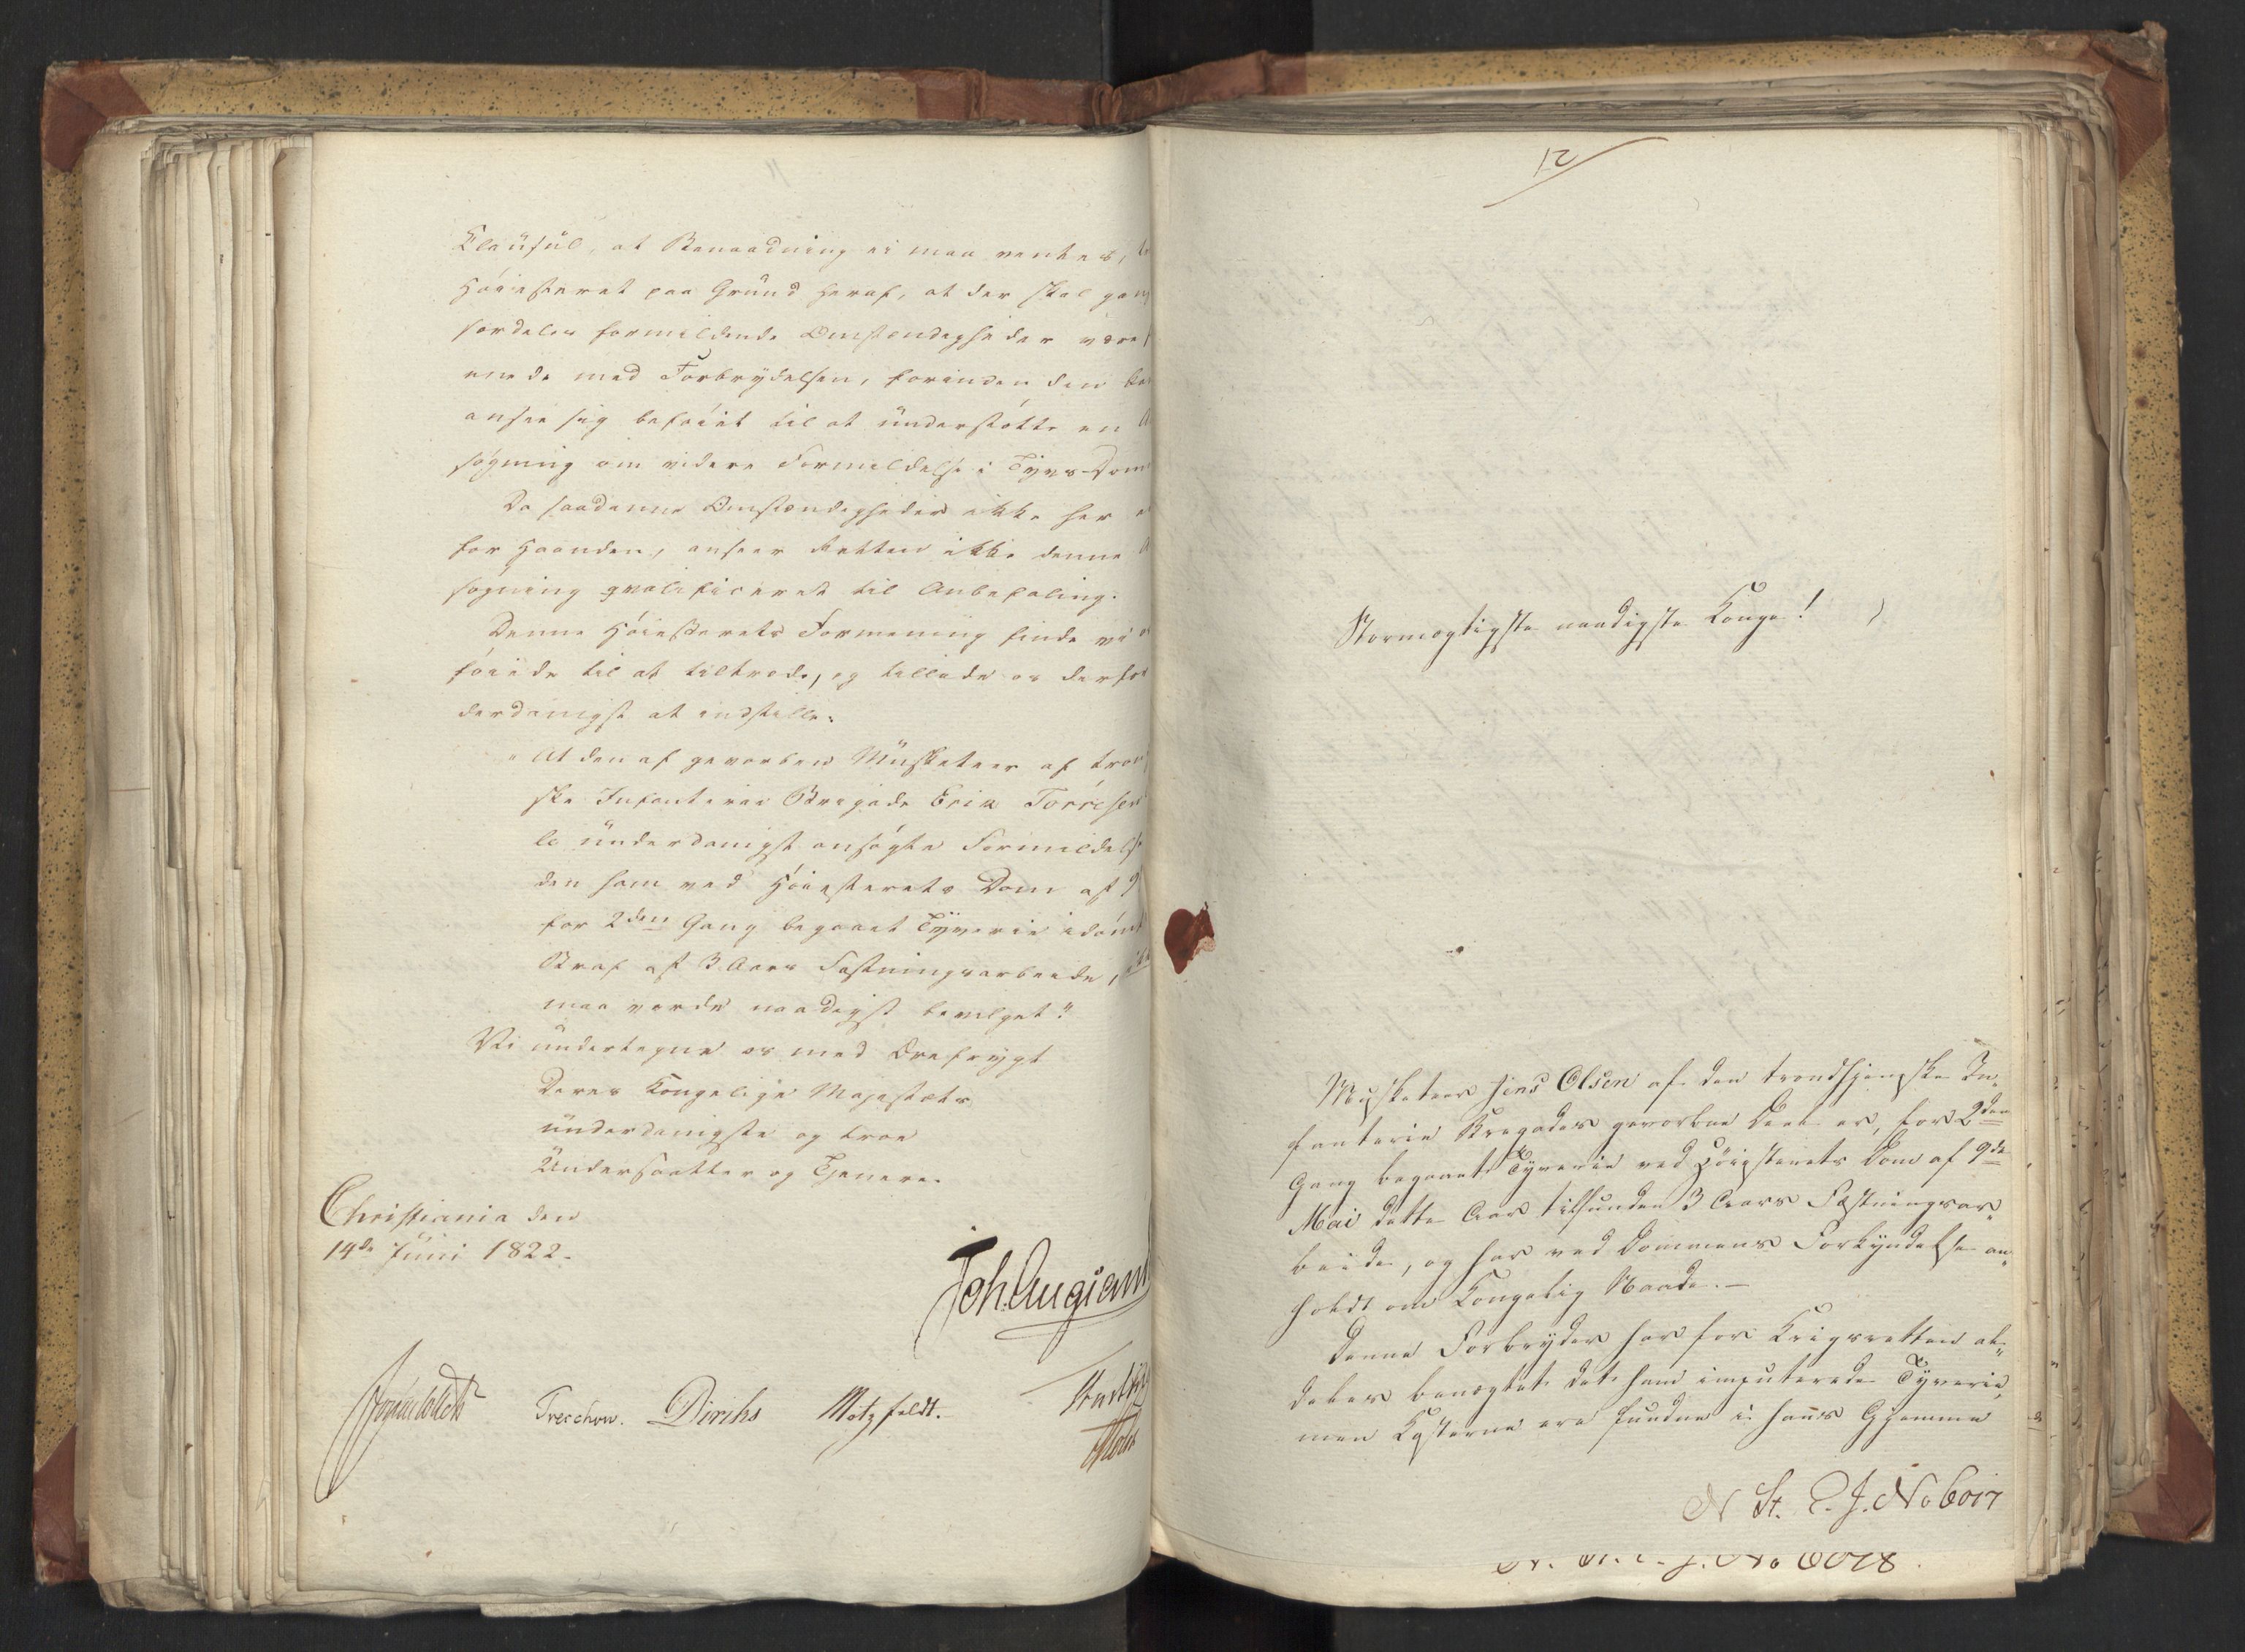 Clausul, at Benaadning ei maa ventes,
Høiesteret paa Grund heraf, at der skal gan
særdeles formildende Omstændigheder være
enede med Forbrydelsen, forinden den
ansee sig beføiet til at understøtte en
søgning om videre Formildelse i Tyvs-Dom
Da saadanne Omstændigheder ikke her
for Haanden, anseer Retten ikke denne
søgning qvalificeret til Anbefaling.
Denne Høiesterets Formening finde vi
føiede til at tiltræde, og tillade os derfor
derdanigst at indstille:
"At den af gevorben Musketeer af tron
ske Infanterie Brigade Erik Torresen
le underdanigst ansøgte Formildelse
den ham ved Høiesterets Dom af 9
for 2den Gang begaaet Tyverie idømt
Straf af 3 Aars Fæstningsarbeide,
maa vorde naadigst bevilget."
Vi undertegne os med Ærefrygt
Deres Kongelige Majestæts
underdanigste og troe
Undersaatter og Tjenere.
Christiania den
14de Juni 1822.
Treschow. Diriks Motzfeldt.
12
Stormægtigste naadigste Konge!
Musketeer Jens Olsen af den trondhjemske In-
fanterie Brigades gevorbne Deel er, for 2den
Gang begaaet Tyverie ved Høiesterets Dom af 9de
Mai dette Aar tilfunden 3 Aars Fæstningsar-
beide, og har ved Dommens Forkyndelse an-
holdt om Kongelig Naade.-
Denne Forbryder har for Krigsretten al-
deles benægtet det ham imputerede Tyverie,
men Kosterne ere fundne i hans Gjemme
N St. E. J. No 6017